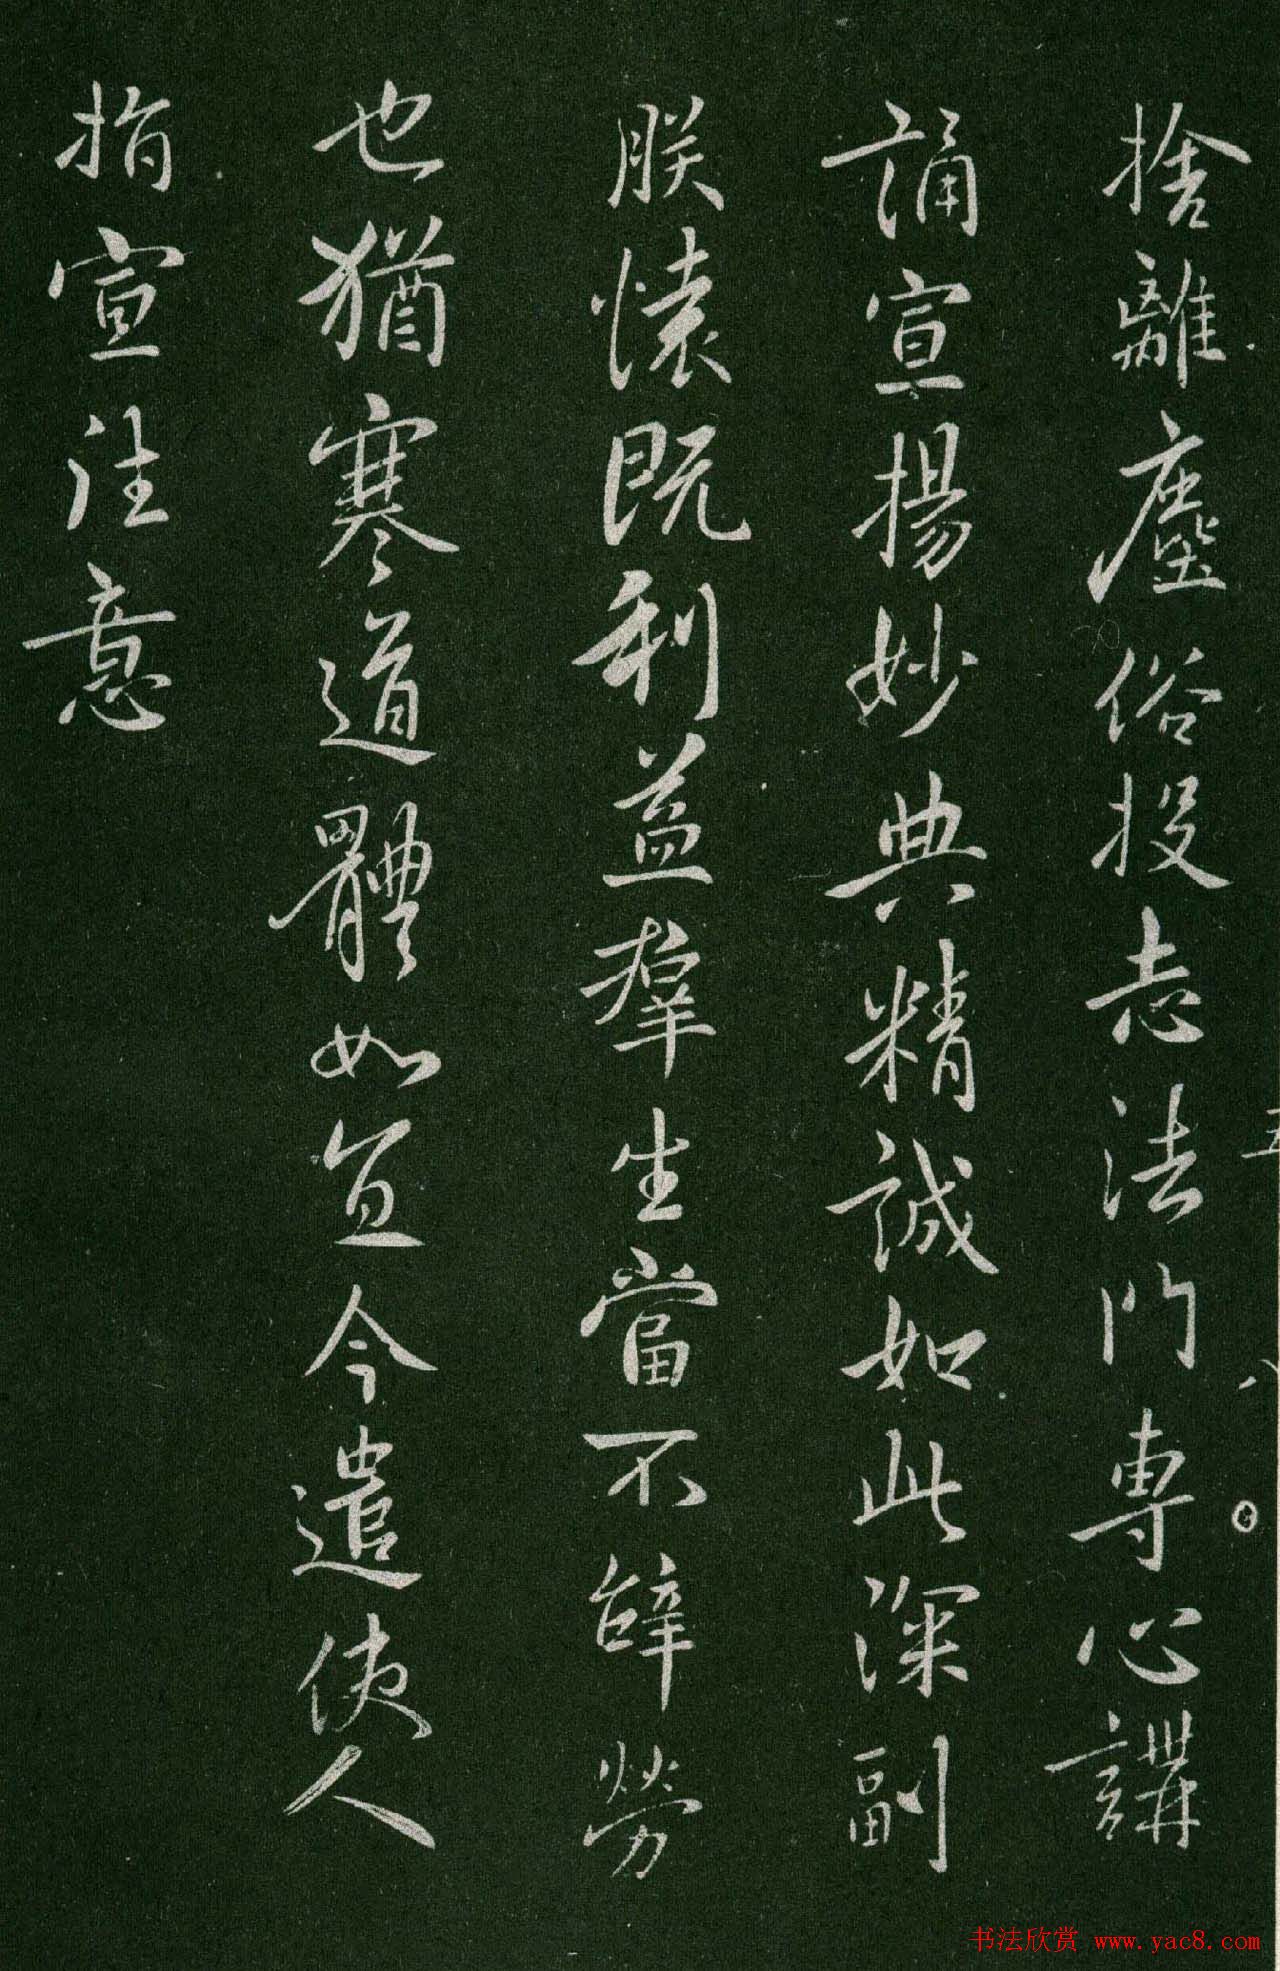 捨離塵俗投志法門專心講
誦宣揚妙典精誠如此深副
朕懷既利益羣生當不辭勞
也猶寒道體如宜今遣使人
指宣往意
书法欣赏 www.yac8.com